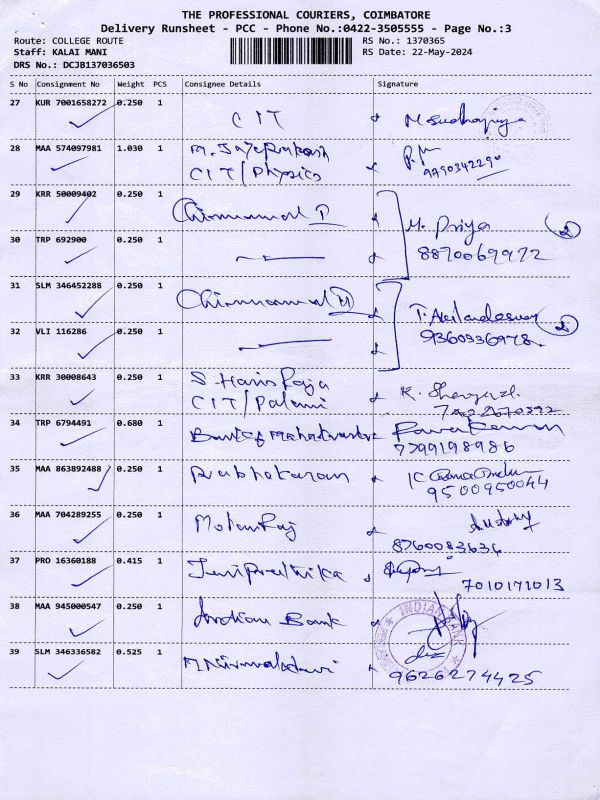 THE PROFESSIONAL COURIERS, COIMBATORE
Delivery Runsheet - PCC - Phone No.:0422-3505555 - Page No.:3
Route: COLLEGE ROUTE
RS No.: 1370365
Staff: KALAI MANI
RS Date: 22-May-2024
DRS No.: DCJB137036503
S No Consignment No Weight PCS Consignee Details Signature
27 KUR 7001658272 0.250 1 CIT
28 MAA 574097981 1.030 1 CIT/Physics
9790342290
29 KRR 50009402 0.250 1 M. Priya 2
30 TRP 692900 0.250 1 8870069972
31 SLM 346452288 0.250 1 2
32 VLI 116286 0.250 1 9360336978
33 KRR 30008643 0.250 1 S Haris Raja
CIT/Palani
34 TRP 6794491 0.680 1 Bank of Maharashtra
7299198986
35 MAA 863892488 0.250 1 Prabhakaran
9500950044
36 MAA 704289255 0.250 1 MohanRaj
8760083636
37 PRO 16360188 0.415 1 7010171013
38 MAA 945000547 0.250 1 Indian Bank INDIAN BANK
39 SLM 346336582 0.525 1 M Nirmaladevi 9626274425